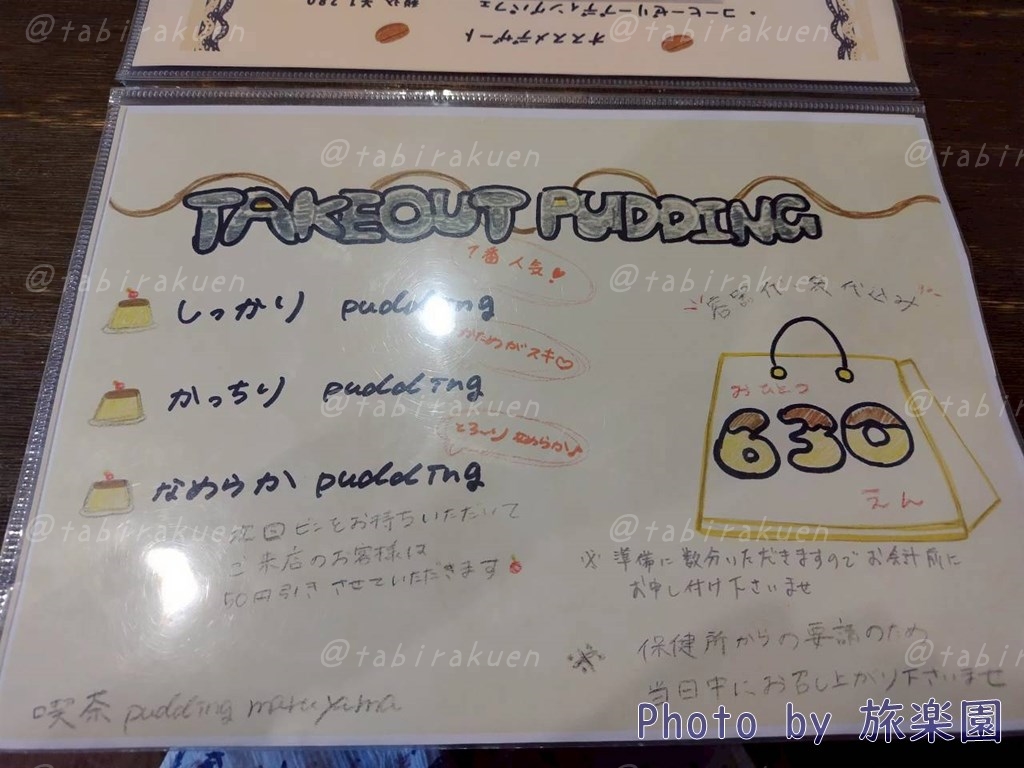 ・コーヒーゼリープディングパフェ
税込 ¥1,280
オススメデザート
TAKEOUT PUDDING
1番人気!
しっかり pudding
かためがスキ
かっちり pudding
とろ〜り なめらか♪
なめらか pudding
次回ビンをお持ちいただいて
ご来店のお客様は
50円引きさせていただきます
容器代・袋代込み
おひとつ
630
えん
※準備に数分いただきますのでお会計前に
お申し付け下さいませ
※ 保健所からの要請のため
当日中にお召し上がり下さいませ
喫茶 pudding maruyama
Photo by 旅楽園
@tabirakuen
@tabirakuen
@tabirakuen
@tabirakuen
@tabirakuen
@tabirakuen
@tabirakuen
@tabirakuen
@tabirakuen
@tabirakuen
@tabirakuen
@tabirakuen
@tabirakuen
@tabirakuen